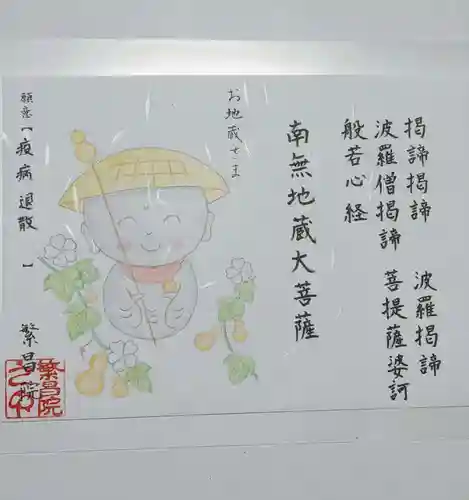 掲諦掲諦 波羅掲諦
波羅僧掲諦 菩提薩婆訶
般若心経
南無地蔵大菩薩
お地蔵さま
願意【疫病退散 】
繁昌院
繁昌院